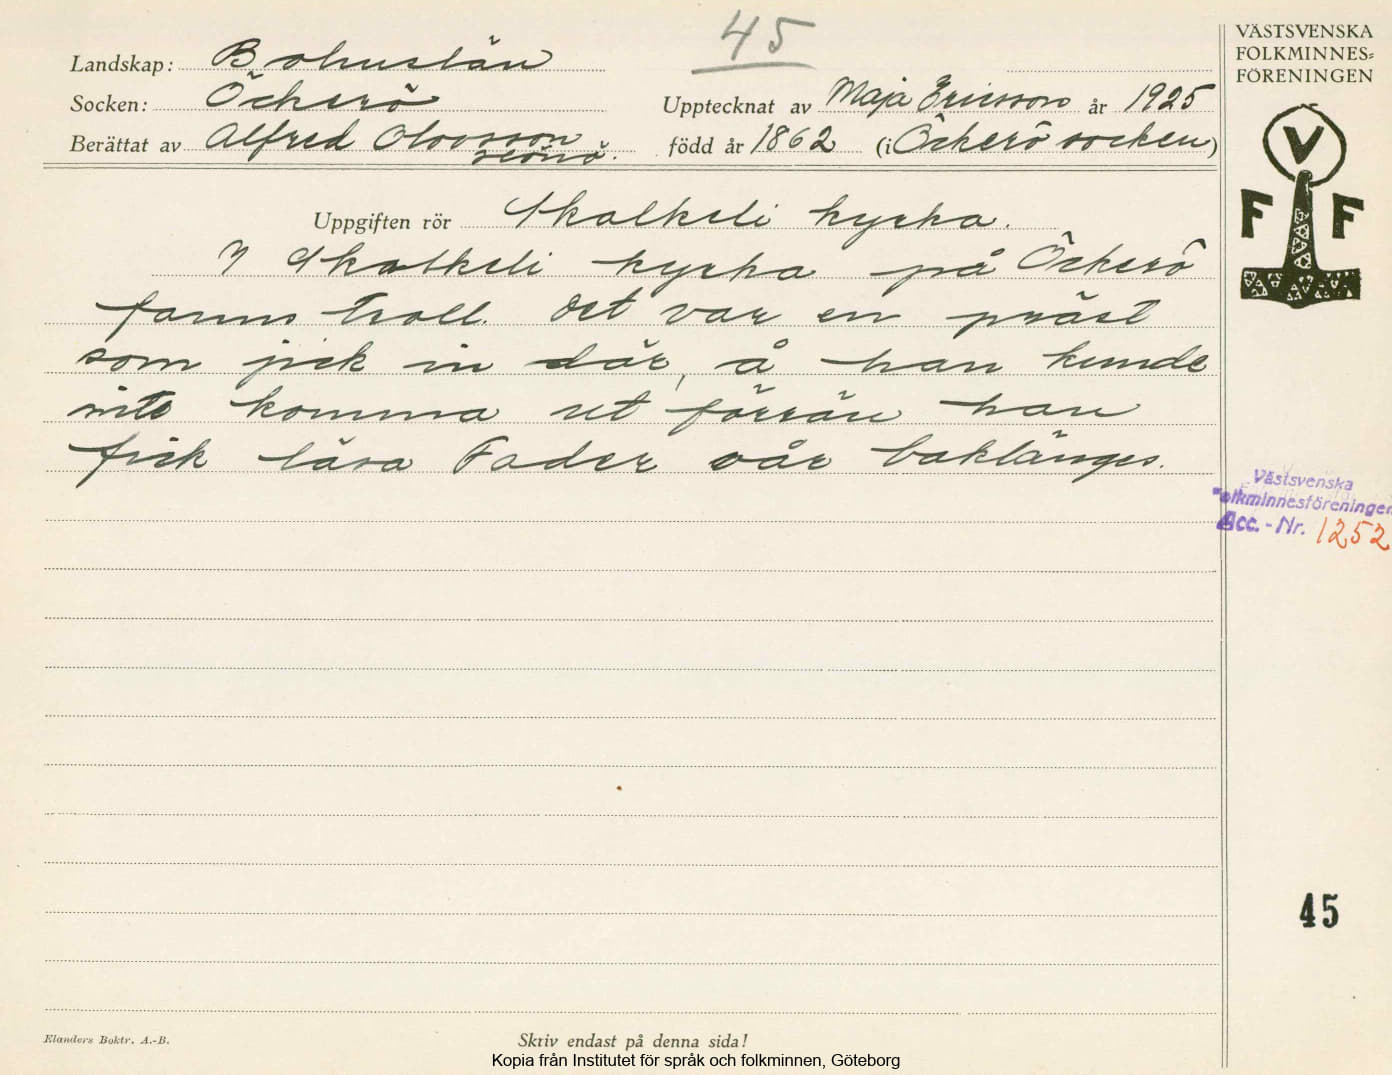 45
VÄSTSVENSKA
FOLKMINNES=
FÖRENINGEN
Landskap: Bohuslän
Socken: Öckerö
Upptecknat av Maja Ericsson år 1925
Berättat av Alfred Olovsson
född år 1862 (i Öckerö socken)
V
F F
Uppgiften rör Skalkeli kyrka.
I Skalkeli kyrka på Öckerö
fanns troll. Det var en präst
som jick in där, å han kunde
inte komma ut förrän han
fick läsa Fader vår baklänges.
Västsvenska
Folkminnesföreningen
Acc.-Nr. 1252
45
Elanders Boktr. A.-B.
Skriv endast på denna sida!
Kopia från Institutet för språk och folkminnen, Göteborg